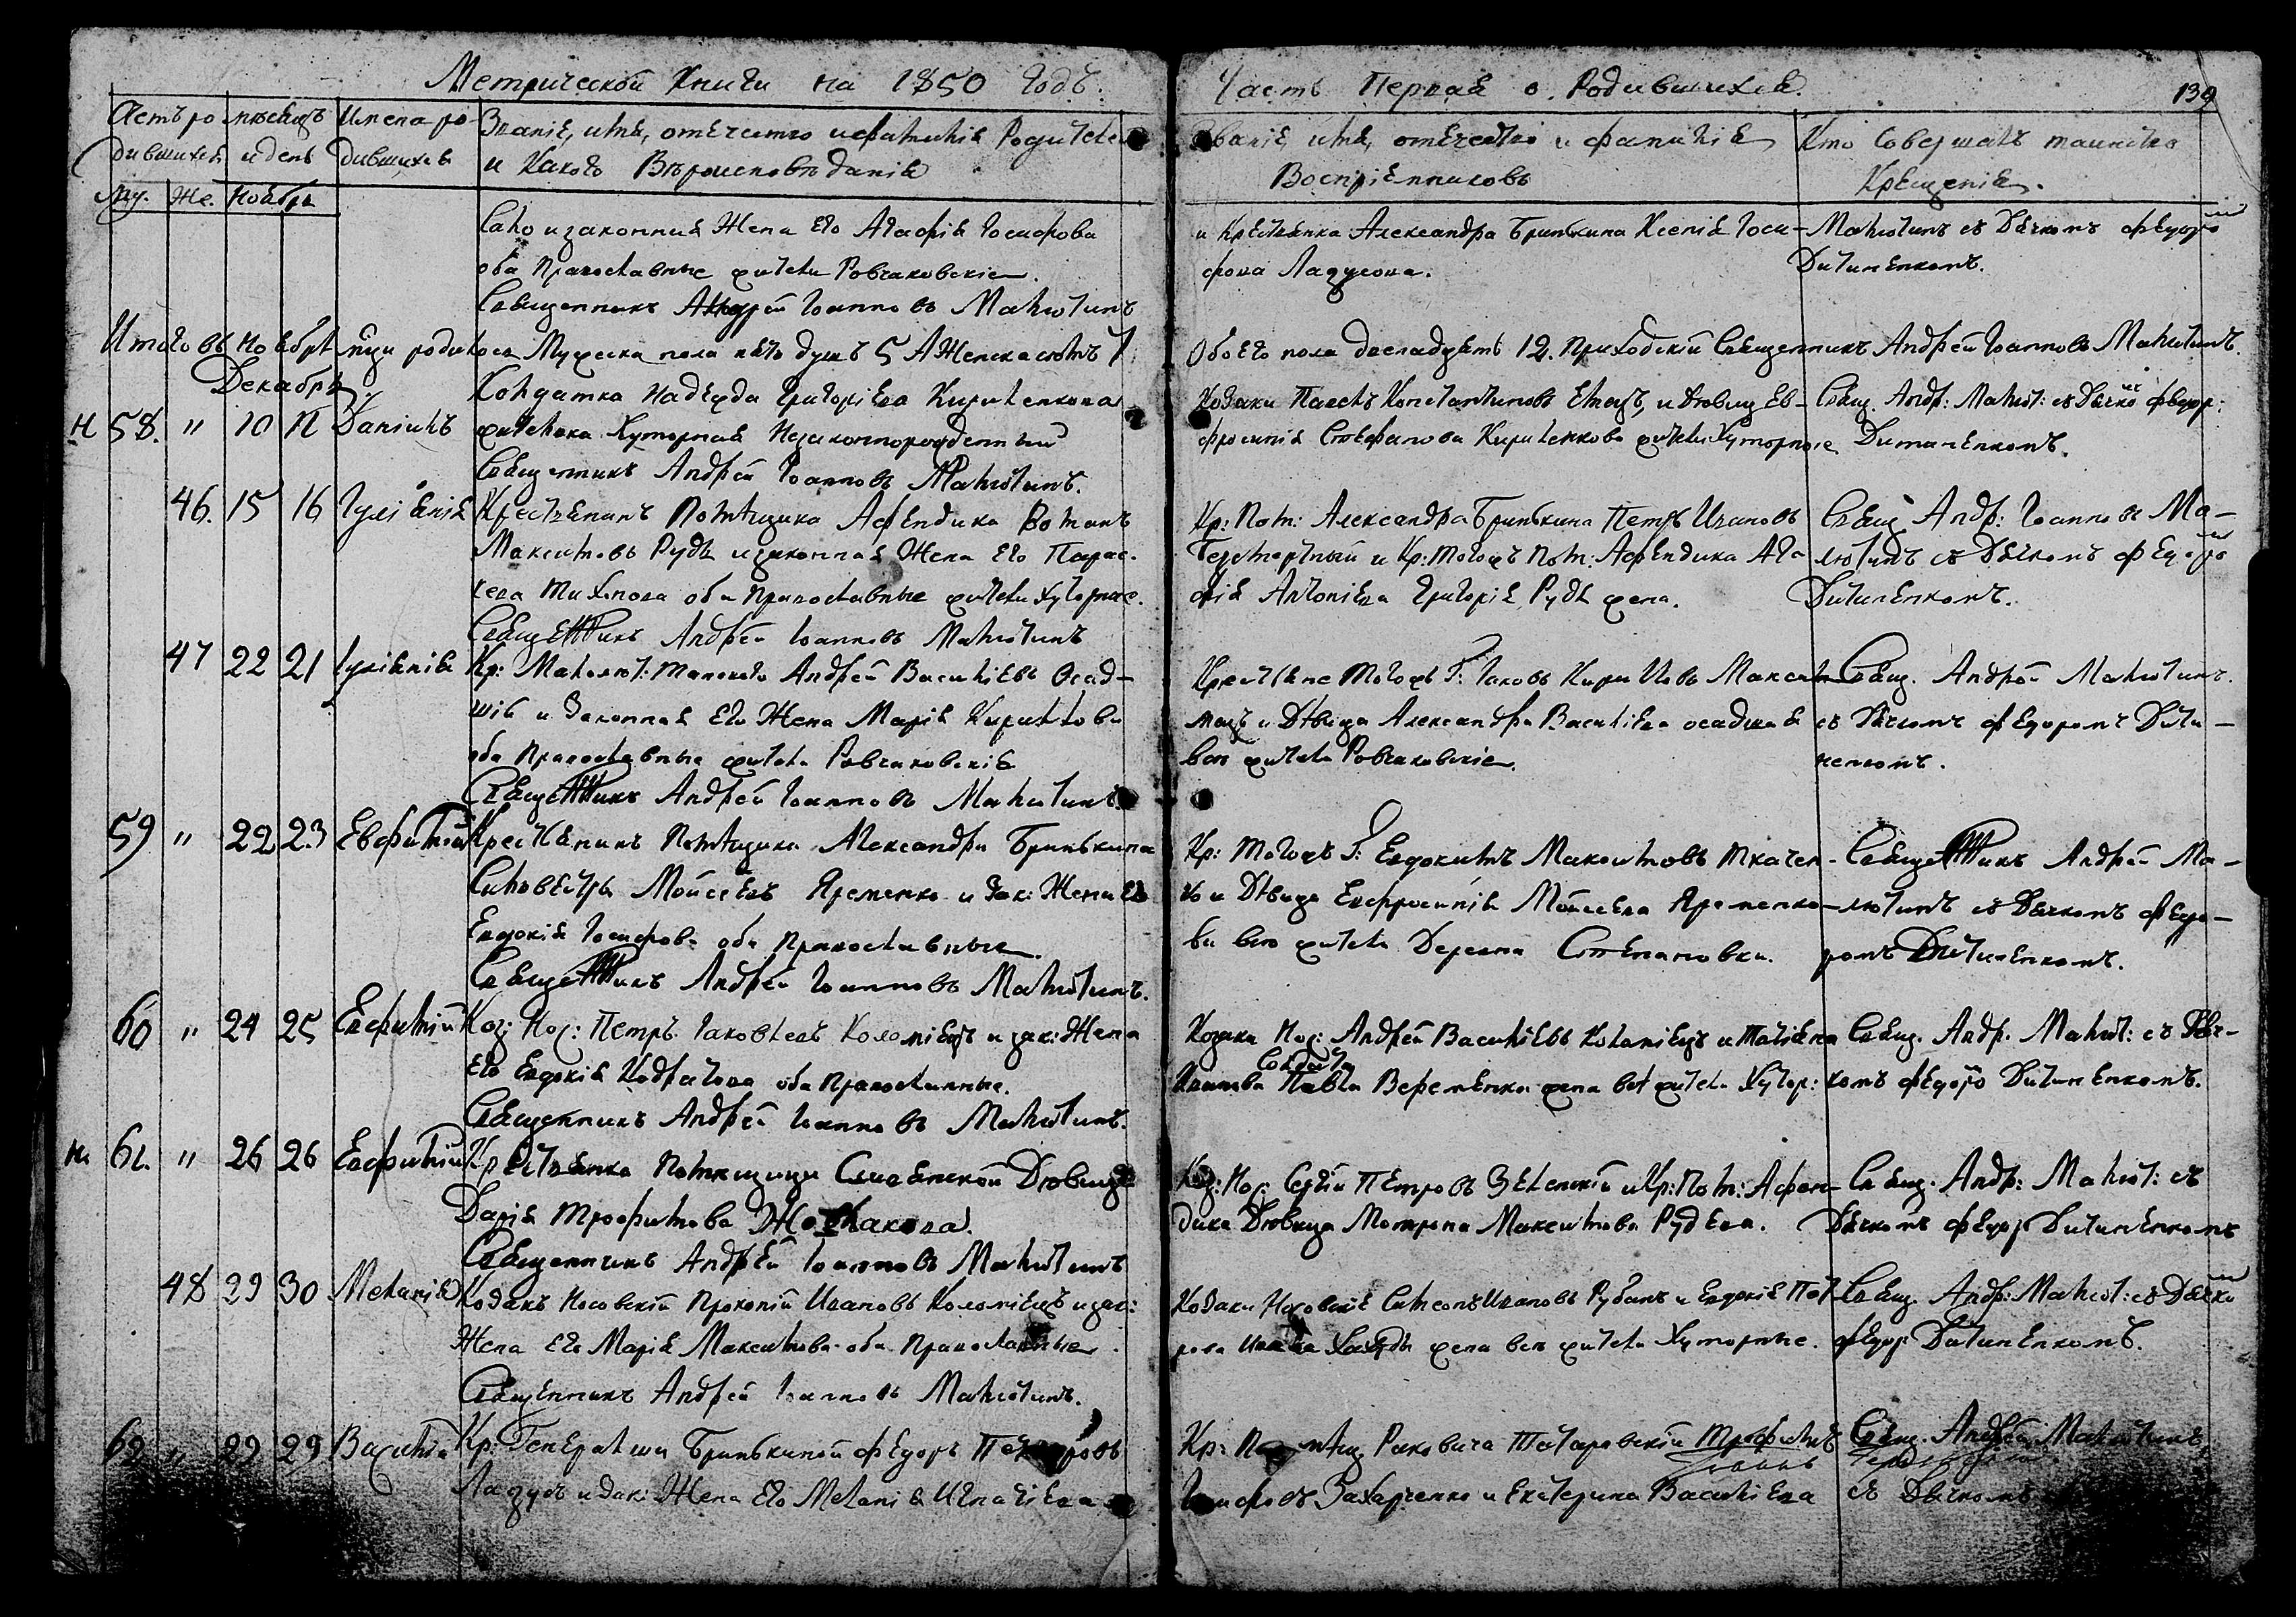 Метрической Книги на 1850 Годъ.
Часть Первая о Родившихся
139
Счетъ ро- мѣсяцъ Имена ро-
дившихся и день дившихся
Му. Же. Ноябрь
Званіе, имя, отечество и фамилія Родителей
и Какого Вѣроисповѣданія
Званіе, имя, отечество и фамилія
Воспріемниковъ
Кто Совершалъ таинство
Крещенія.
и законная Жена его Агафія Іосифова
оба Православные жители Ровчаковскіе.
Священникъ Андрей Іоанновъ Малютинъ
и Крестьянка Александра Бринкина Ксенія Іоси-
фова Ладусова.
Малютинъ съ Дьячкомъ Федоро
Дитиненкомъ.
Итого въ Ноябрѣ м-ци родилось Мужеска пола пять душъ 5 А Женска семь 7.
Обоего пола двенадцать 12. Приходскій Священникъ Андрей Іоанновъ Малютинъ.
Декабрь
Н 58. " 10 11 Даніилъ
Солдатка Надежда Григоріева Кириленкова
жителька Хуторная Незаконнорожденный
Священникъ Андрей Іоанновъ Малютинъ.
Козаки Павелъ Константиновъ и Дѣвица Ев-
фросинія Стефанова Кириленкова жители Хуторные
Свящ. Андр: Малют: съ Дьячко Федор:
Дитиненкомъ.
46. 15 16 Іуліанія
Крестьянинъ Помѣщика Афендика Романъ
Максимовъ Рудь и законная Жена его Парас-
кева Тихонова оба Православные жители Хуторные.
Священникъ Андрей Іоанновъ Малютинъ
Кр: Пом: Александра Бринкина Петръ Ивановъ
и Кр: Тогожъ Пом: Афендика Ага-
фія Антоніева Григорія Рудя жена.
Свящ. Андр: Іоанновъ Ма-
лютинъ съ Дьячкомъ Федоро
Дитиненкомъ.
47 22 21 Іуліанія
Кр: Андрей Василіевъ Осад-
шій и Законная его Жена Марія Кириллова
оба Православные жители Ровчаковскія
Священникъ Андрей Іоанновъ Малютинъ.
Крестьяне Тогожъ Г: Іаковъ Кирилловъ
и Дѣвица Александра Василіева осадшая
вси жители Ровчаковскіе.
Свящ. Андрей Малютинъ.
съ Дьячкомъ Федоромъ Дити-
ненкомъ.
59 " 22 23 Евфимій
Крестьянинъ Помѣщика Александра Бринкина
Сильвестръ Моисеевъ Яременко и Зак: Жена его
Евдокія Іосифова оба Православные.
Священникъ Андрей Іоанновъ Малютинъ.
Кр: Тогожъ Г: Евдокимъ Максимовъ Ткачен-
ко и Дѣвица Евфросинія Моисеева Яременко-
ва вси жители Деревни Степановки.
Священникъ Андрей Ма-
лютинъ съ Дьячкомъ Федо-
ромъ Дитиненкомъ.
60 " 24 25 Евфимій
Коз: Нос: Петръ Іаковлевъ Коломіецъ и зак: Жена
Его Евдокія Кодратова оба Православные.
Священникъ Андрей Іоанновъ Малютинъ.
Козаки Нос: Андрей Василіевъ Коломіецъ и Татіана
Солдата
Иванова Павла Веременка жена всѣ жители Хутор:
Свящ. Андр. Малют: съ Дьяч-
комъ Федоро Дитиненкомъ.
Н 61. " 26 26 Евфимій
Крестьянка Помѣщицы Дѣвица
Дарія Трофимова
Священникъ Андрей Іоанновъ Малютинъ
Коз: Нос: Сергій Петровъ Зеленскій и Кр: Пом: Афен-
дика Дѣвица Мотрона Максимова Рудева.
Свящ. Андр: Малют: съ
Дьячкомъ Федор Дитиненкомъ
48 29 30 Меланія
Козакъ Носовскій Прокопій Ивановъ Коломіецъ и зак:
Жена его Марія Максимова оба Православные.
Священникъ Андрей Іоанновъ Малютинъ.
Козаки Носовскіе Симеонъ Ивановъ Рубанъ и Евдокія Пет-
рова жена вси жители Хуторные.
Свящ. Андр: Малют: съ Дьячко
Федор Дитиненкомъ.
62 " 29 29 Василій
Кр: Генеральши Бринкиной Федоръ
Ладусъ и Зак: Жена Его Меланія Игнатіева
Кр: Раковича Татаровскій Трофимъ
Іосифовъ Захарченко и Екатерина Василіева
Свящ. Андрей Малютинъ
съ Дьячкомъ